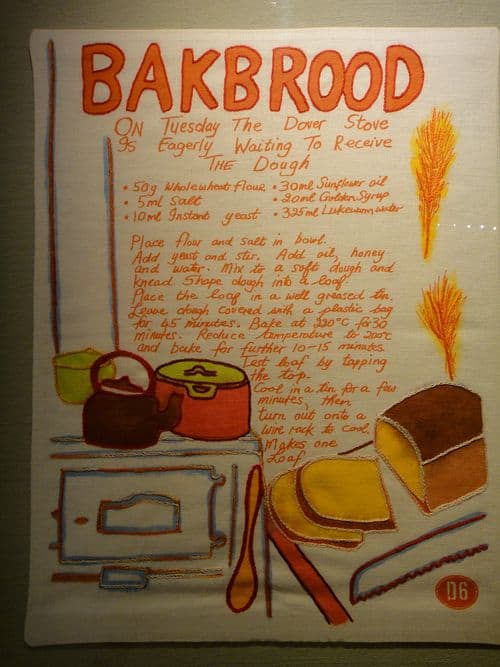 BAKBROOD
ON Tuesday The Dover Stove
is Eagerly Waiting To Receive
THE Dough
• 50g Wholewheat flour • 30ml Sunflower oil
• 5ml Salt • 20ml Golden Syrup
• 10ml Instant yeast • 325ml Lukewarm water
Place flour and salt in bowl.
Add yeast and stir. Add oil, honey
and water. Mix to a soft dough and
knead. Shape dough into a loaf.
Place the loaf in a well greased tin.
Leave dough covered with a plastic bag
for 45 minutes. Bake at 220°C for 30
minutes. Reduce temperature to 200°C
and bake for further 10-15 minutes.
Test loaf by tapping
the top.
Cool in a tin for a few
minutes, then
turn out onto a
wire rack to cool.
Makes one
Loaf
D6